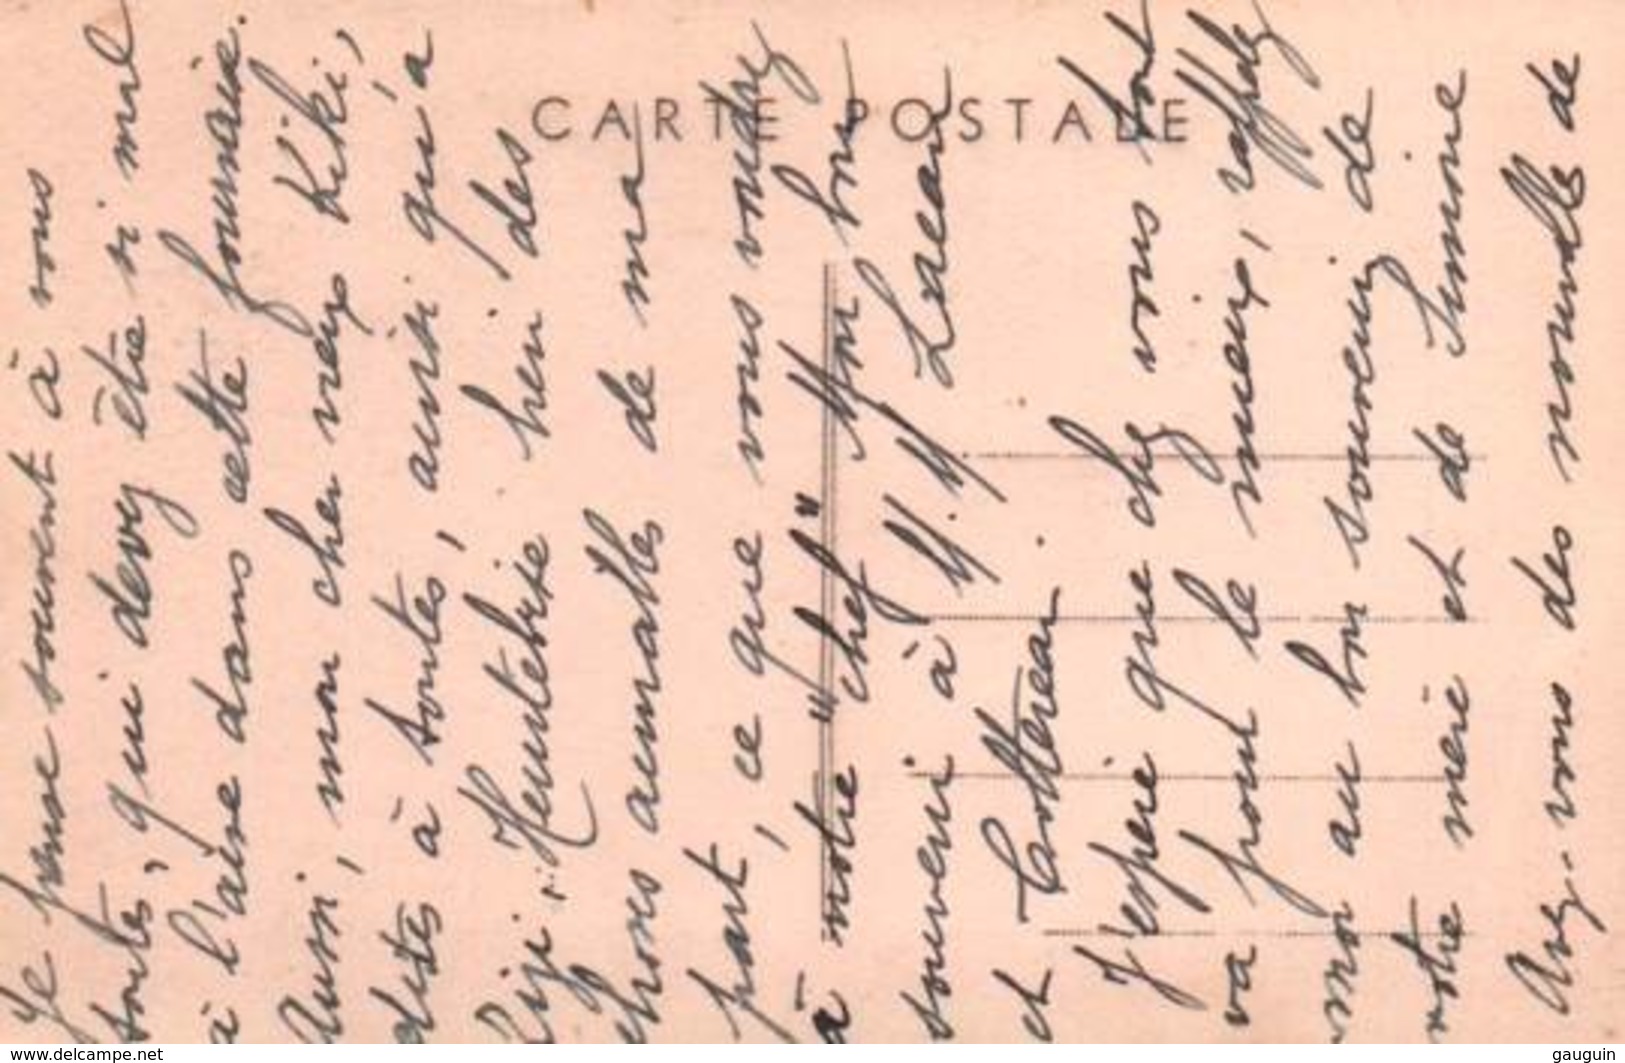 CARTE POSTALE
Je pense souvent à vous
toutes, qui devez être si mal
à l'aise dans cette fournaise.
Aussi, mon cher vieux Kiki,
dites à toutes, aussi qu'à
Heurtebise, bien des
choses aimables de ma
part, ce que vous voudrez
à notre "chef" Mon bon
souvenir à M.M. Lacan
et Cottereau.
J'espère que chez vous tout
va pour le mieux, rappelez
mon au bon souvenir de
votre mère et de Simone
Avez-vous des nouvelles de
www.delcampe.net
gauguin